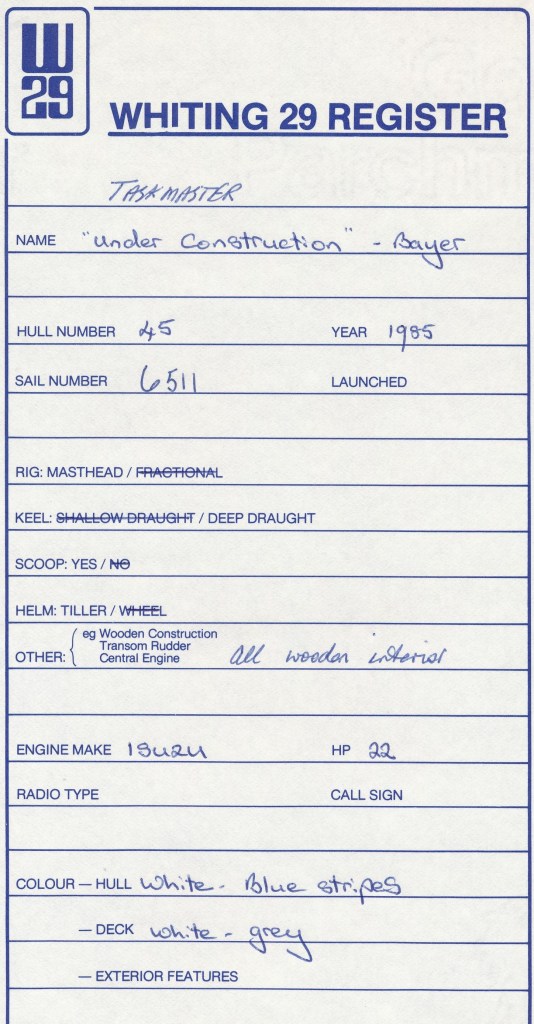 W
29
WHITING 29 REGISTER
TASKMASTER
NAME "under Construction" - Bayer
HULL NUMBER 45 YEAR 1985
SAIL NUMBER 6511 LAUNCHED
RIG: MASTHEAD / FRACTIONAL
KEEL: SHALLOW DRAUGHT / DEEP DRAUGHT
SCOOP: YES / NO
HELM: TILLER / WHEEL
OTHER: { eg Wooden Construction
Transom Rudder
Central Engine all wooden interior
ENGINE MAKE ISUZU HP 22
RADIO TYPE CALL SIGN
COLOUR — HULL White - Blue stripes
— DECK white - grey
— EXTERIOR FEATURES